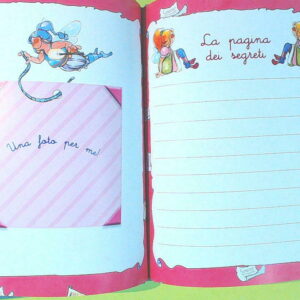 Una foto per me!
La pagina
dei segreti